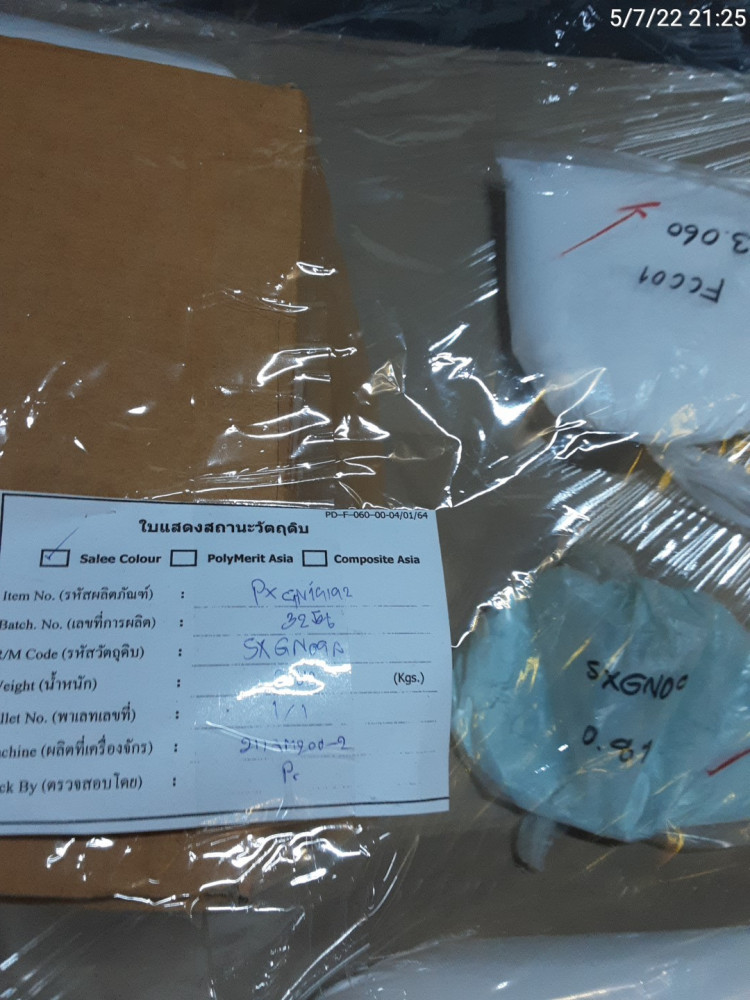 5/7/22 21:25
3.060
FCC01
PD-F-060-00-04/01/64
ใบแสดงสถานะวัตถุดิบ
Salee Colour PolyMerit Asia Composite Asia
Item No. (รหัสผลิตภัณฑ์) :
Batch. No. (เลขที่การผลิต) :
R/M Code (รหัสวัตถุดิบ) : SXGN09A
eight (น้ำหนัก) : (Kgs.)
llet No. (พาเลทเลขที่) : 1/1
chine (ผลิตที่เครื่องจักร) :
ck By (ตรวจสอบโดย) :
0.81